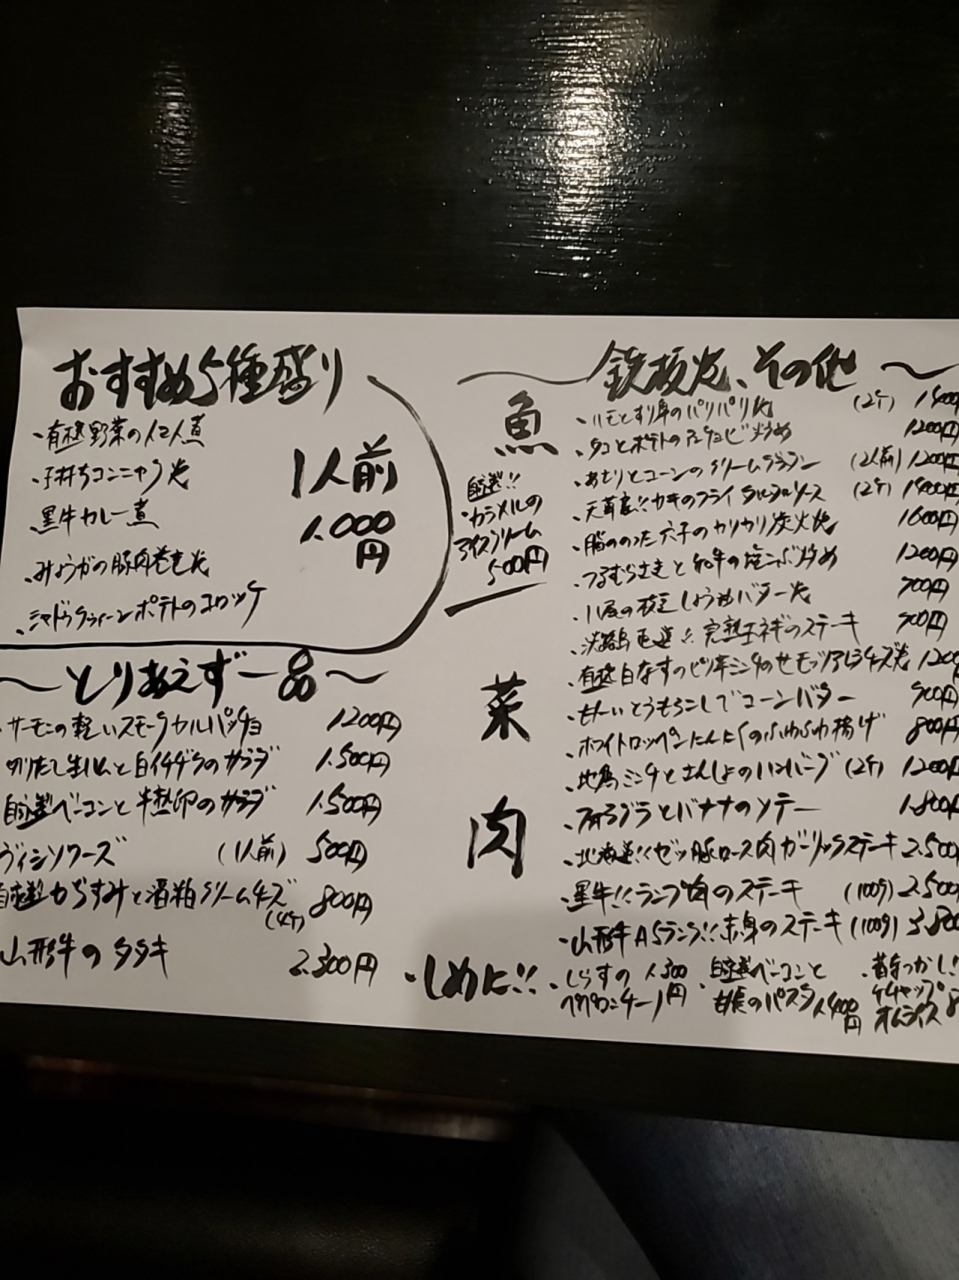 おすすめ5種盛り
・有機野菜のうま煮
・子持ちコンニャク炙
・黒牛カレー煮
・みょうがの豚肉巻き炙
・シャドークイーンポテトのコロッケ
1人前
1.000
円
〜とりあえず一品〜
サーモンの軽いスモークカルパッチョ 1200円
切りたし生ハムと白イチヂクのサラダ 1.500円
自家製ベーコンと半熟卵のサラダ 1.500円
ヴィシソワーズ (1人前) 500円
自家製からすみと酒粕クリームチーズ 800円
山形牛のタタキ 2.300円
〜鉄板炙、その他〜
魚
・ハモとすり身のパリパリ炙 (2ケ)
・タコとポテトのアンチョビ炒め 1200円
・あさりとコーンのクリームグラタン (2人前) 1200円
・天草産!!カキのフライ タルタルソース (2ケ) 1400円
・脂ののった穴子のカリカリ炭火炙 1600円
・つるむらさきと和牛の塩こんぶ炒め 1200円
自家製!!
・カラメルの
アイスクリーム
500円
菜
しょうゆバター炙 700円
・淡路島 完熟玉ネギのステーキ 900円
・有機白なすのピリ辛ミンチのせモッツアレラチーズ炙
・甘〜いとうもろこしでコーンバター 900円
・ホワイトロッペンにんにくのふわふわ揚げ 800円
・地鳥ミンチとさんしょのハンバーグ (2ケ) 1200円
肉
・フォアグラとバナナのソテー 1.800円
・北海道!!ゼッ豚ロース肉ガーリックステーキ 2.500
・黒牛!!ランプ肉のステーキ (100g) 2.500
・山形牛A5ランク!!赤身のステーキ (100g) 3.800
・しめに!!
・しらすの 1.300
ペペロンチーノ 円
・自家製ベーコンと
のパスタ 1.400
円
・昔なつかし!!
ケチャップ
オムライス